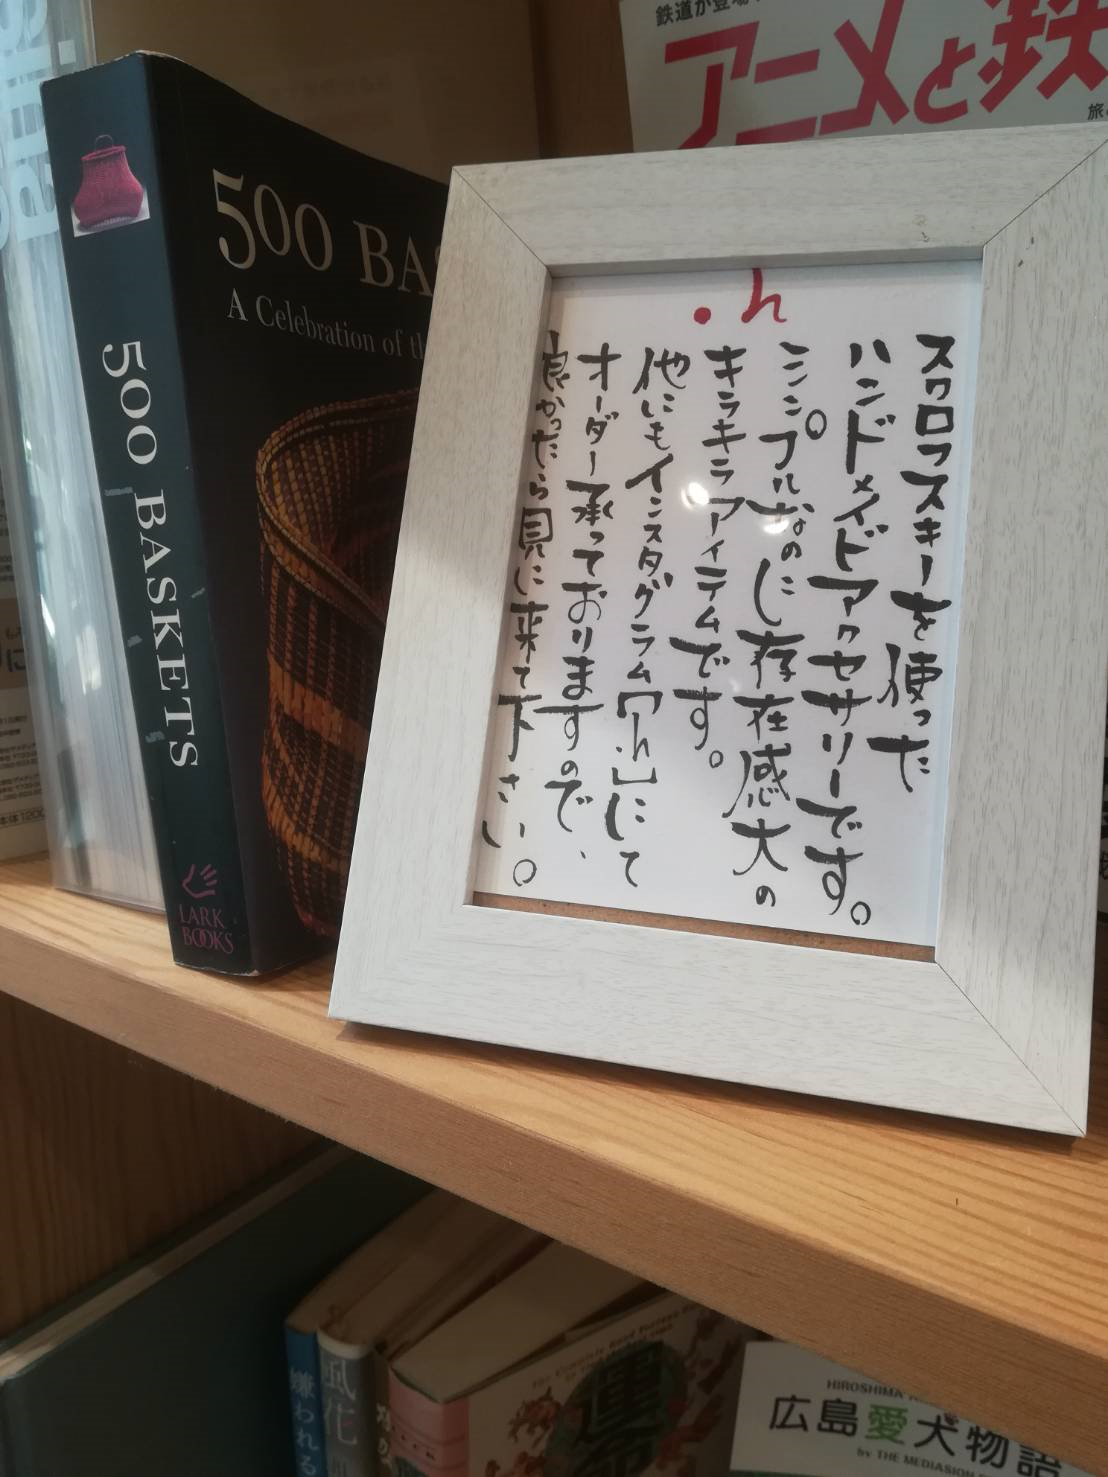 鉄道が登場
アニメと鉄
旅
500 BASKETS
LARK
BOOKS
500 BAS
A Celebration of th
.h
スワロフスキーを使った
ハンドメイドアクセサリーです。
シンプルなのに存在感大の
キラキラアイテムです。
他にもインスタグラム「.h」にて
オーダー承っておりますので、
良かったら見に来て下さい。
本体1200
嫌われる
風花
The Complete
運命
HIROSHIMA
広島愛犬物語
by THE MEDIASION